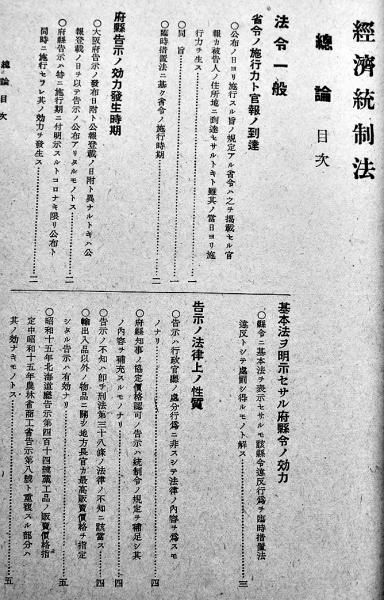 經濟統制法
總論 目次
法令一般
省令ノ施行力ト官報ノ到達
○公布ノ日ヨリ施行スル旨ノ規定アル省令ハ之ヲ揭載セル官
報カ被吿人ノ住所地ニ到達セサルトキト雖其ノ當日ヨリ施
行力チ生ス……一
○同 旨……一
○臨時措置法ニ基ク省令ノ施行時期……二
府縣吿示ノ効力發生時期
○大阪府吿示ノ發布日附ト公報登載ノ日附ト異ナルトキハ公
報登載ノ日チ以テ吿示ノ公布アリタルモノトス……二
○府縣吿示ハ特ニ施行期ニ付明示スルトコロナキ限リ公布ト
同時ニ施行セラレ其ノ効力チ發生ス……二
基本法ヲ明示セサル府縣令ノ効力
○縣令ニ基本法チ表示セサルモ該縣令違反行爲チ臨時措置法
違反トシテ處罰シ得ルモノト解ス……三
吿示ノ法律上ノ性質
○吿示ハ行政官廳ノ處分行爲ニ非スシテ法律ノ內容チ爲スモ
ノナリ……四
○府縣知事ノ協定價格認可ノ吿示ハ統制令ノ規定チ補足シ其
ノ內容チ補充スルモノナリ……四
○吿示ノ不知ハ卽チ刑法第三十八條ノ法律ノ不知ニ該當ス……四
○輸出入品以外ノ物品ニ關シ地方長官カ最高販賣價格チ指定
シタル吿示ハ有効ナリ……五
○昭和十五年北海道廳吿示第四百十四號藁工品ノ販賣價格指
定中昭和十五年農林省商工省吿示第八號ト重複スル部分ハ
其ノ効ナキモノトス……五
總論目次